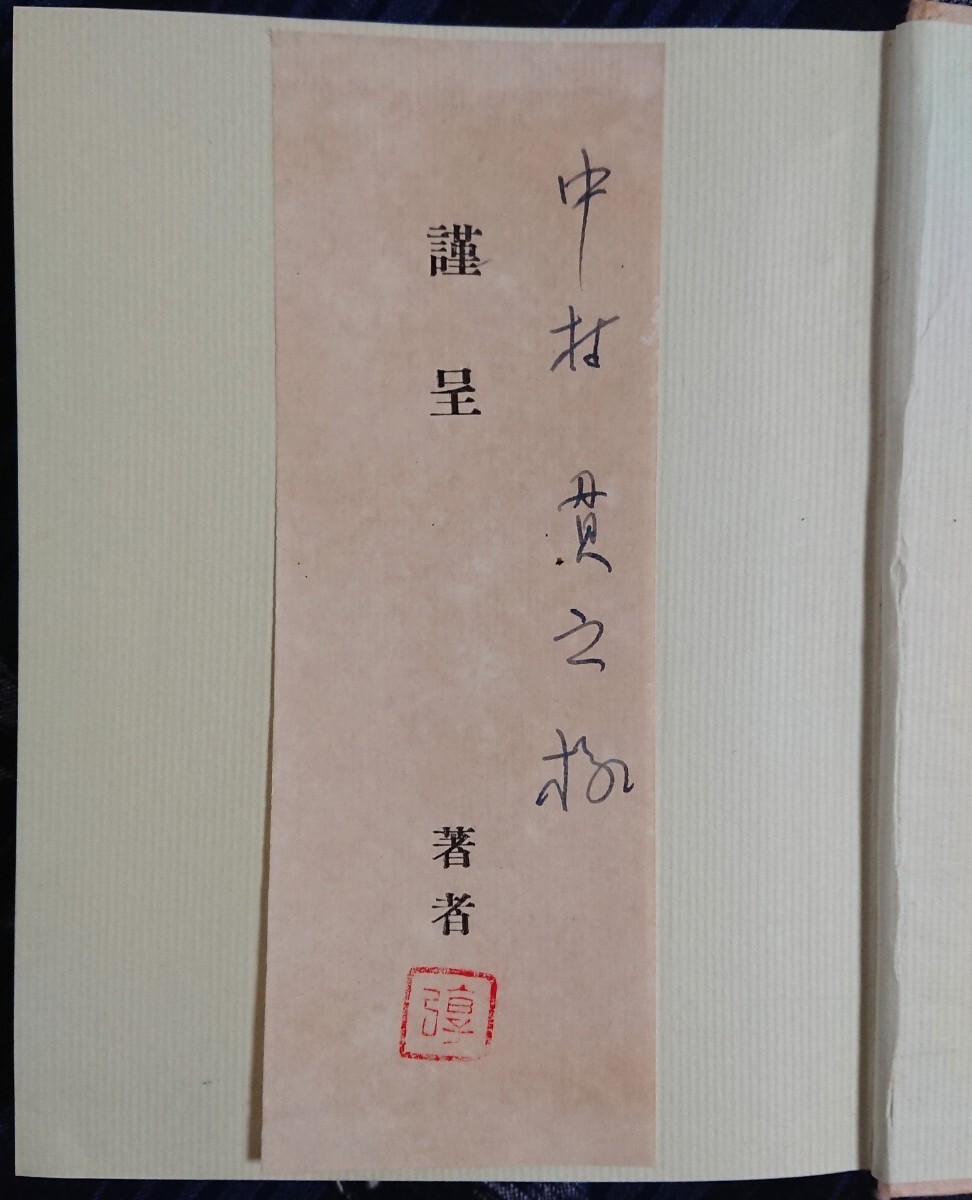 中村 貫之様
謹呈
著者
淳